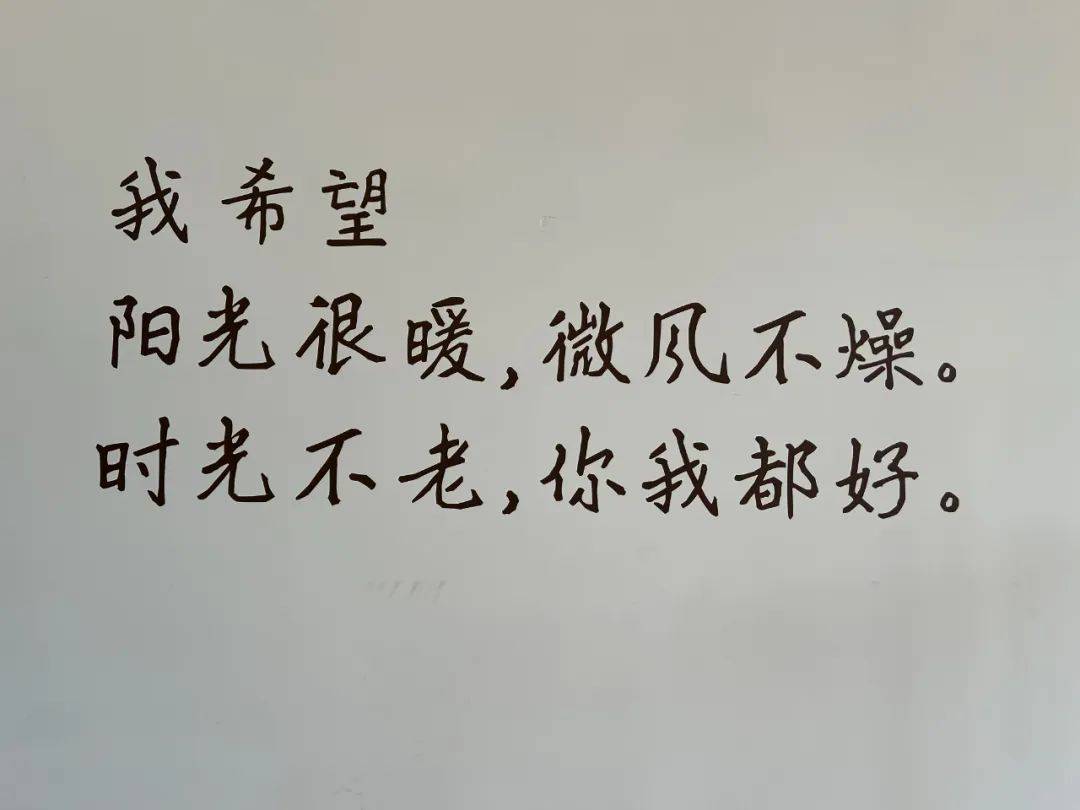 我希望
阳光很暖,微风不燥。
时光不老,你我都好。